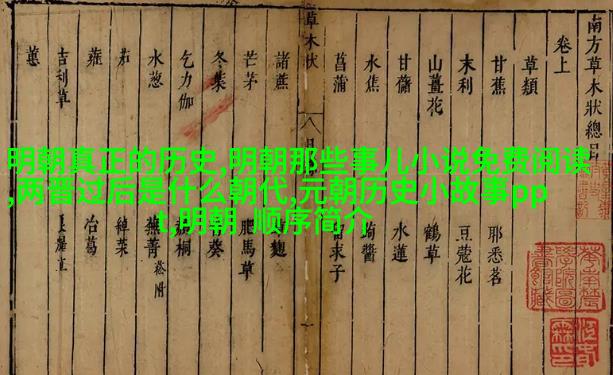 明朝真正的历史,明朝那些事儿小说免费阅读
,两晋过后是什么朝代,元朝历史小故事pp
t,明朝 顺序简介
南方草木狀總目
卷上
草類
甘蕉 耶悉茗
末利 豆蔻花
山薑花 鶴草
甘藷 水蓮
水蕉 醬
菖蒲 求子
草木狀 八
諸蔗 麴
芒茅 肥馬草
冬葉 葵
乞力伽 桐
水葱 蕪菁 菘附
茄 綽菜
蕹 冶葛
吉利草
蕙